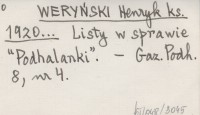 WERYŃSKI Henryk ks.
1920... Listy w sprawie
"Podhalanki". – Gaz. Podh.
8, nr 4.